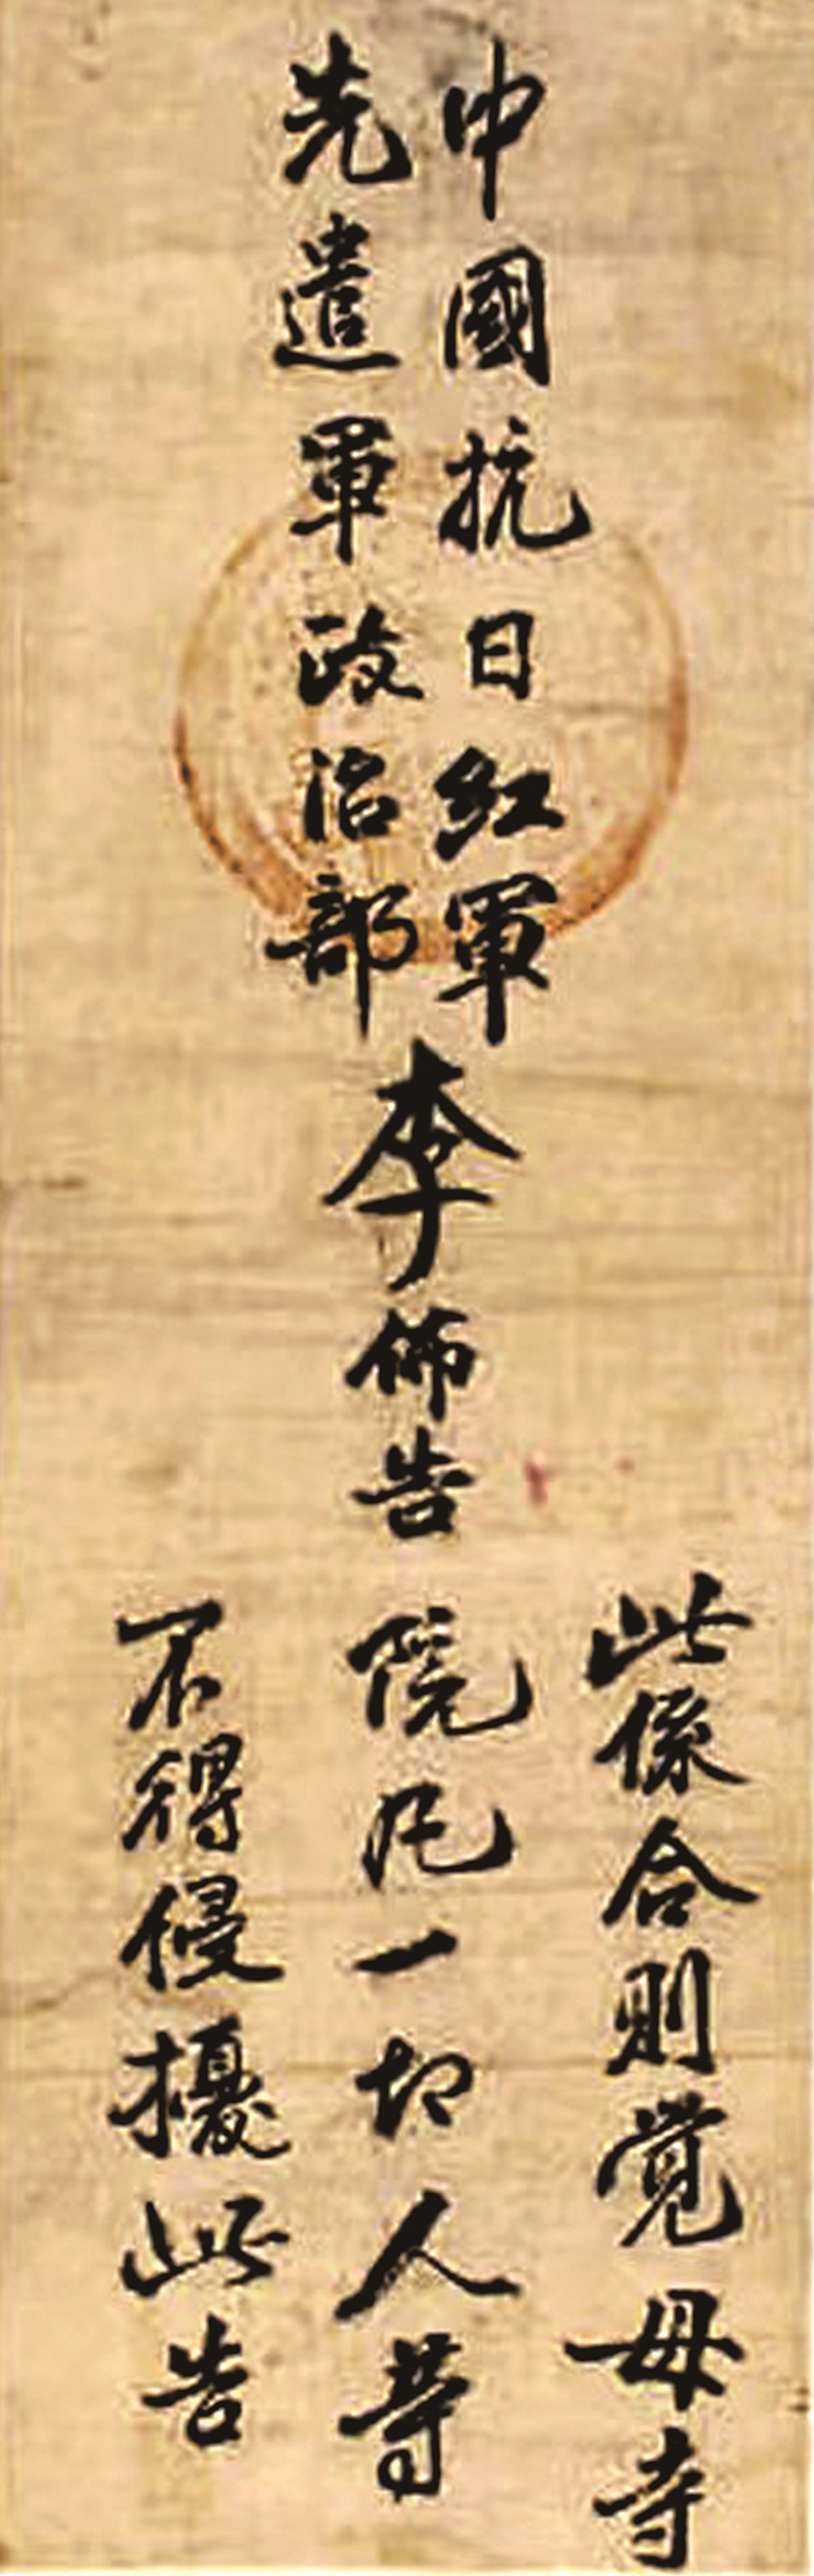 中國抗日紅軍
先遣軍政治部
李佈告
此係合則覚母寺
院凡一切人等
不得侵擾此告